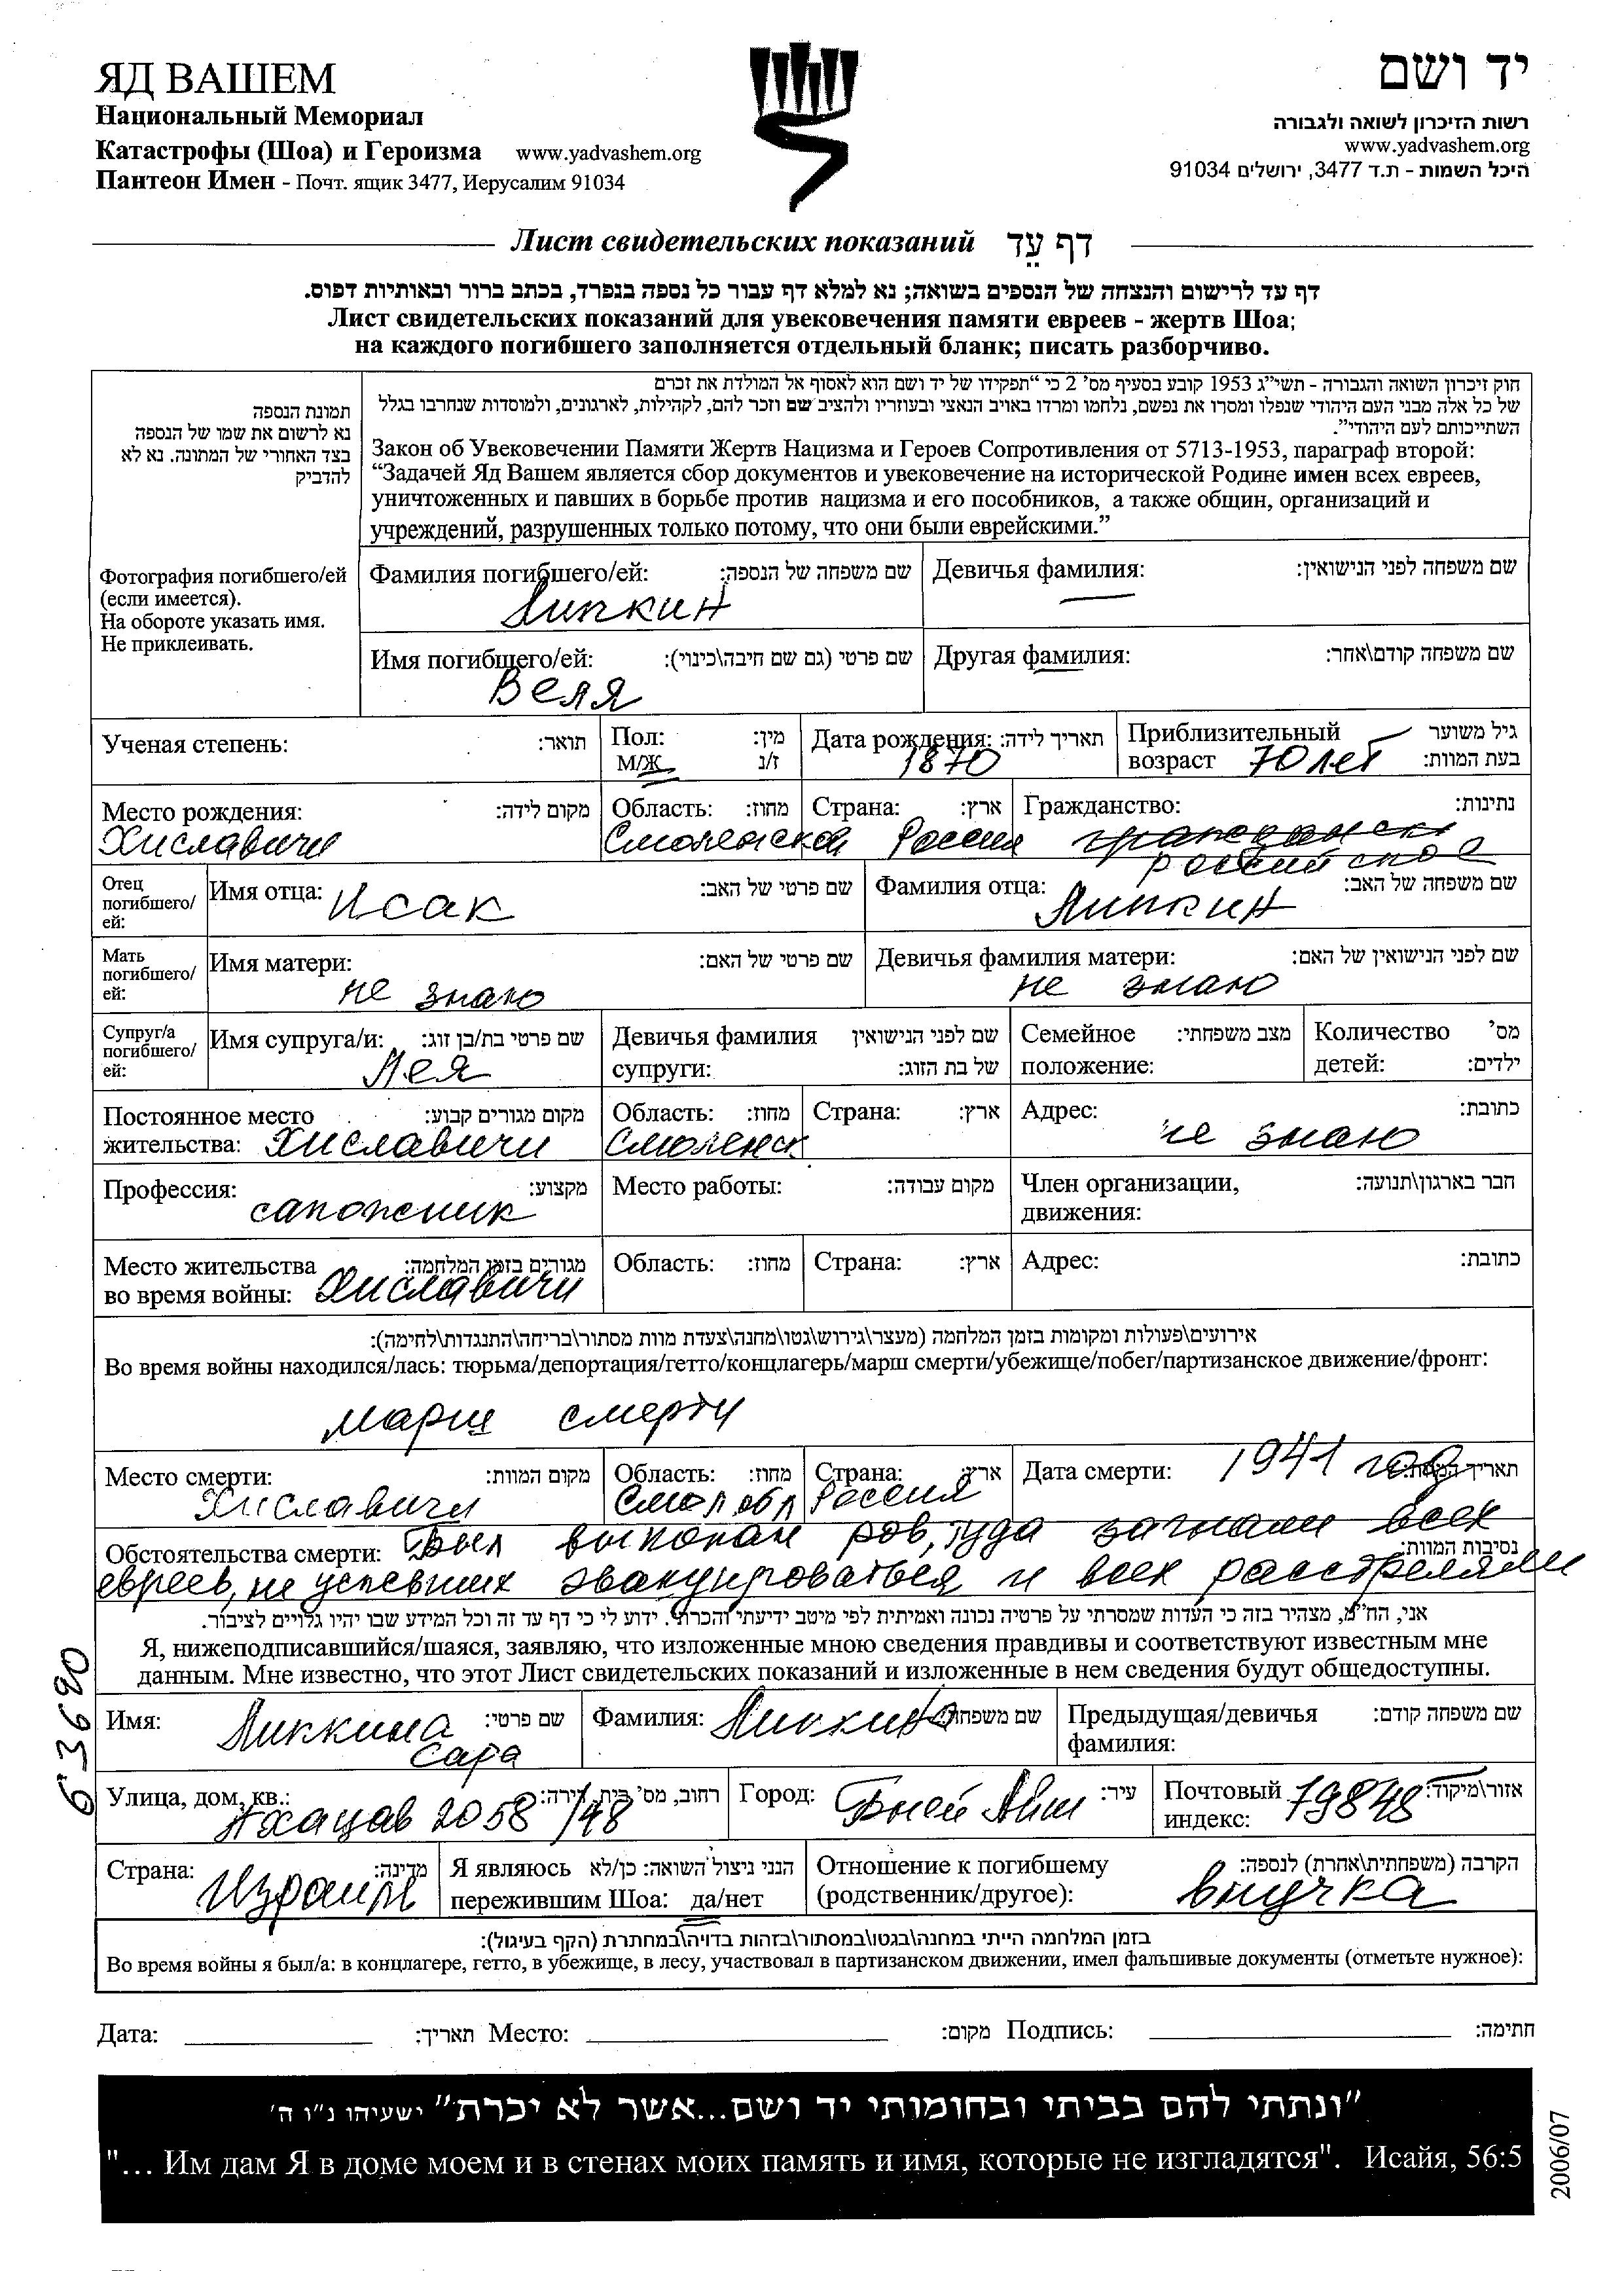 ЯД ВАШЕМ
Национальный Мемориал
Катастрофы (Шоа) и Героизма www.yadvashem.org
Пантеон Имен - Почт. ящик 3477, Иерусалим 91034
יד ושם
רשות הזיכרון לשואה ולגבורה
www.yadvashem.org
היכל השמות - ת.ד 3477, ירושלים 91034
Лист свидетельских показаний דף עֵד
דף עד לרישום והנצחה של הנספים בשואה; נא למלא דף עבור כל נספה בנפרד, בכתב ברור ובאותיות דפוס.
Лист свидетельских показаний для увековечения памяти евреев - жертв Шоа;
на каждого погибшего заполняется отдельный бланк; писать разборчиво.
תמונת הנספה
נא לרשום את שמו של הנספה
בצד האחורי של המתונה. נא לא
להדביק
Фотография погибшего/ей
(если имеется).
На обороте указать имя.
Не приклеивать.
חוק זיכרון השואה והגבורה - תשי"ג 1953 קובע בסעיף מס' 2 כי "תפקידו של יד ושם הוא לאסוף אל המולדת את זכרם
של כל אלה מבני העם היהודי שנפלו ומסרו את נפשם, נלחמו ומרדו באויב הנאצי ובעוזריו ולהציב שם וזכר להם, לקהילות, לארגונים, ולמוסדות שנחרבו בגלל
השתייכותם לעם היהודי".
Закон об Увековечении Памяти Жертв Нацизма и Героев Сопротивления от 5713-1953, параграф второй:
“Задачей Яд Вашем является сбор документов и увековечение на исторической Родине имен всех евреев,
уничтоженных и павших в борьбе против нацизма и его пособников, а также общин, организаций и
учреждений, разрушенных только потому, что они были еврейскими.”
Фамилия погибшего/ей: שם משפחה של הנספה: Девичья фамилия: שם משפחה לפני הנישואין:
Липкин —
Имя погибшего/ей: שם פרטי (גם שם חיבה\כינוי): Другая фамилия: שם משפחה קודם\אחר:
Веля
Ученая степень: תואר: Пол: מין: Дата рождения: תאריך לידה: Приблизительный גיל משוער
М/Ж ז/נ 1870 возраст 70 лет בעת המוות:
Место рождения: מקום לידה: Область: מחוז: Страна: ארץ: Гражданство: נתינות:
Хиславичи Смоленская Россия
российское
Отец
погибшего/
ей:
Имя отца: Исак שם פרטי של האב: Фамилия отца: Липкин שם משפחה של האב:
Мать
погибшего/
ей:
Имя матери: שם פרטי של האם: Девичья фамилия матери: שם לפני הנישואין של האם:
не знаю не знаю
Супруг/а
погибшего/
ей:
Имя супруга/и: שם פרטי בת/בן זוג: Девичья фамилия שם לפני הנישואין Семейное מצב משפחתי: Количество מס'
Лея супруги: של בת הזוג: положение: детей: ילדים:
Постоянное место מקום מגורים קבוע: Область: מחוז: Страна: ארץ: Адрес: כתובת:
жительства: Хиславичи Смоленск не знаю
Профессия: מקצוע: Место работы: מקום עבודה: Член организации, חבר בארגון\תנועה:
сапожник движения:
Место жительства מגורים בזמן המלחמה: Область: מחוז: Страна: ארץ: Адрес: כתובת:
во время войны: Хиславичи
אירועים\פעולות ומקומות בזמן המלחמה (מעצר\גירוש\גטו\מחנה\צעדת מוות מסתור\בריחה\התנגדות\לחימה):
Во время войны находился/лась: тюрьма/депортация/гетто/концлагерь/марш смерти/убежище/побег/партизанское движение/фронт:
марш смерти
Место смерти: מקום המוות: Область: מחוז: Страна: ארץ: Дата смерти: 1941 год תאריך המוות:
Хиславичи Смол обл Россия
Обстоятельства смерти: Был выкопан ров, туда загнали всех נסיבות המוות:
евреев, не успевших эвакуироваться и всех расстреляли
אני, הח"מ, מצהיר בזה כי העדות שמסרתי על פרטיה נכונה ואמיתית לפי מיטב ידיעתי והכרתי. ידוע לי כי דף עד זה וכל המידע שבו יהיו גלויים לציבור.
Я, нижеподписавшийся/шаяся, заявляю, что изложенные мною сведения правдивы и соответствуют известным мне
данным. Мне известно, что этот Лист свидетельских показаний и изложенные в нем сведения будут общедоступны.
Имя: Липкина שם פרטי: Фамилия: Липкина שם משפחה: Предыдущая/девичья שם משפחה קודם:
Сара фамилия:
Улица, дом, кв.: רחוב, מס' בית, דירה: Город: Бней Айш עיר: Почтовый 79848 אזור\מיקוד:
Ахацав 2058/48 индекс:
Страна: Израиль מדינה: Я являюсь הנני ניצול השואה: כן/לא Отношение к погибшему הקרבה (משפחתית\אחרת) לנספה:
пережившим Шоа: да/нет (родственник/другое): внучка
בזמן המלחמה הייתי במחנה\בגטו\במסתור\בזהות בדויה\במחתרת (הקף בעיגול):
Во время войны я был/а: в концлагере, гетто, в убежище, в лесу, участвовал в партизанском движении, имел фальшивые документы (отметьте нужное):
Дата: תאריך: Место: מקום: Подпись: חתימה:
"ונתתי להם בביתי ובחומותי יד ושם...אשר לא יכרת" ישעיהו נ"ו ה'
"... Им дам Я в доме моем и в стенах моих память и имя, которые не изгладятся". Исайя, 56:5
2006/07